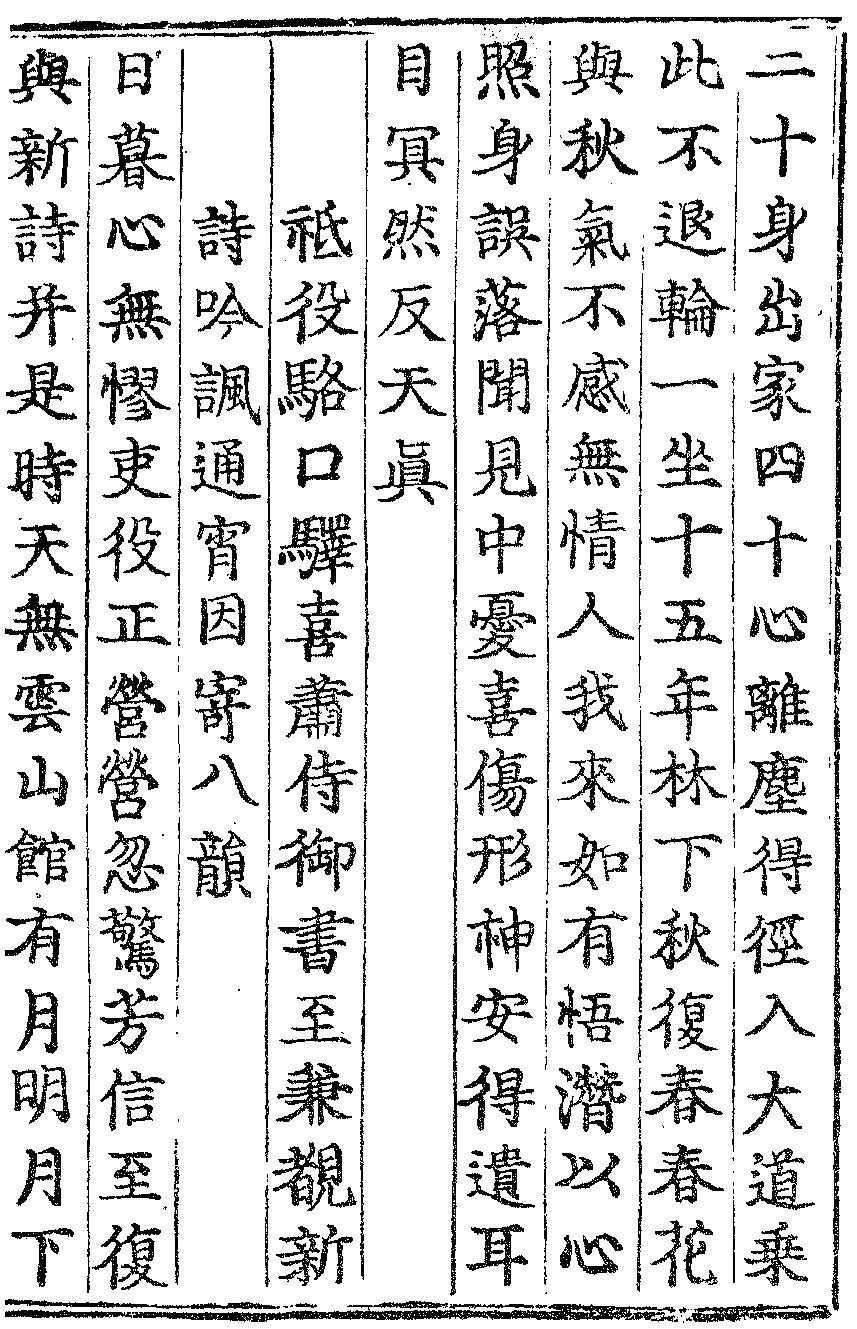 二十身出家四十心離塵得徑入大道乗
此不退輪一坐十五年林下秋復春春花
與秋氣不感無情人我來如有悟潛以心
照身誤落聞見中憂喜傷形神安得遺耳
目冥然反天眞
祗役駱口驛喜蕭侍御書至兼覩新
詩吟諷通宵因寄八韻
日暮心無憀吏役正營營忽驚芳信至復
與新詩并是時天無雲山館有月明月下